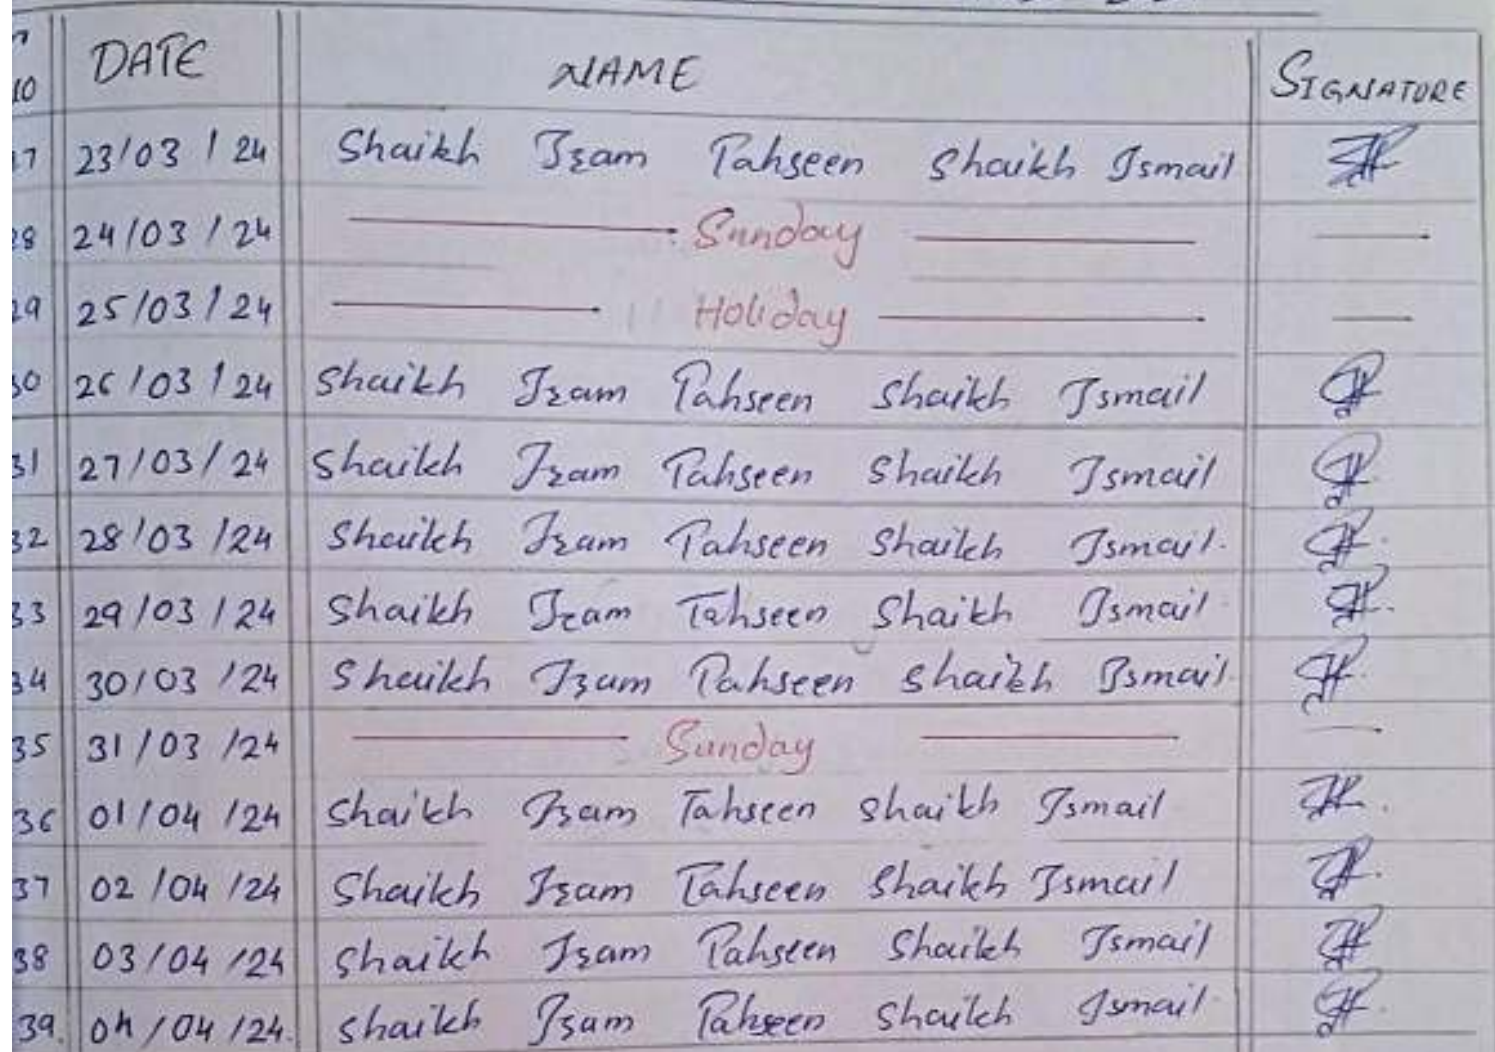 DATE NAME SIGNATURE
23/03/24 Shaikh Izam Tahseen Shaikh Ismail
28 24/03/24 Sunday
29 25/03/24 Holiday
30 26/03/24 Shaikh Izam Tahseen Shaikh Ismail
31 27/03/24 Shaikh Izam Tahseen Shaikh Ismail
32 28/03/24 Shaikh Izam Tahseen Shaikh Ismail.
33 29/03/24 Shaikh Izam Tahseen Shaikh Ismail
34 30/03/24 Shaikh Izam Tahseen Shaikh Ismail.
35 31/03/24 Sunday
36 01/04/24 Shaikh Izam Tahseen Shaikh Ismail
37 02/04/24 Shaikh Izam Tahseen Shaikh Ismail
38 03/04/24 Shaikh Izam Tahseen Shaikh Ismail
39. 04/04/24. Shaikh Izam Tahseen Shaikh Ismail